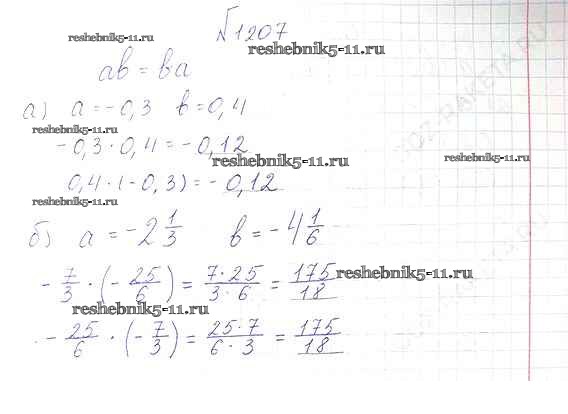 №1207
reshebnik5-11.ru
reshebnik5-11.ru
ab = ba
а) a = -0,3 b = 0,4
reshebnik5-11.ru
-0,3 · 0,4 = -0,12
reshebnik5-11.ru
reshebnik5-11.ru
0,4 · (-0,3) = -0,12
reshebnik5-11.ru
б) a = -2 1/3 b = -4 1/6
-7/3 · (-25/6) = 7·25/3·6 = 175/18
reshebnik5-11.ru
reshebnik5-11.ru
-25/6 · (-7/3) = 25·7/6·3 = 175/18